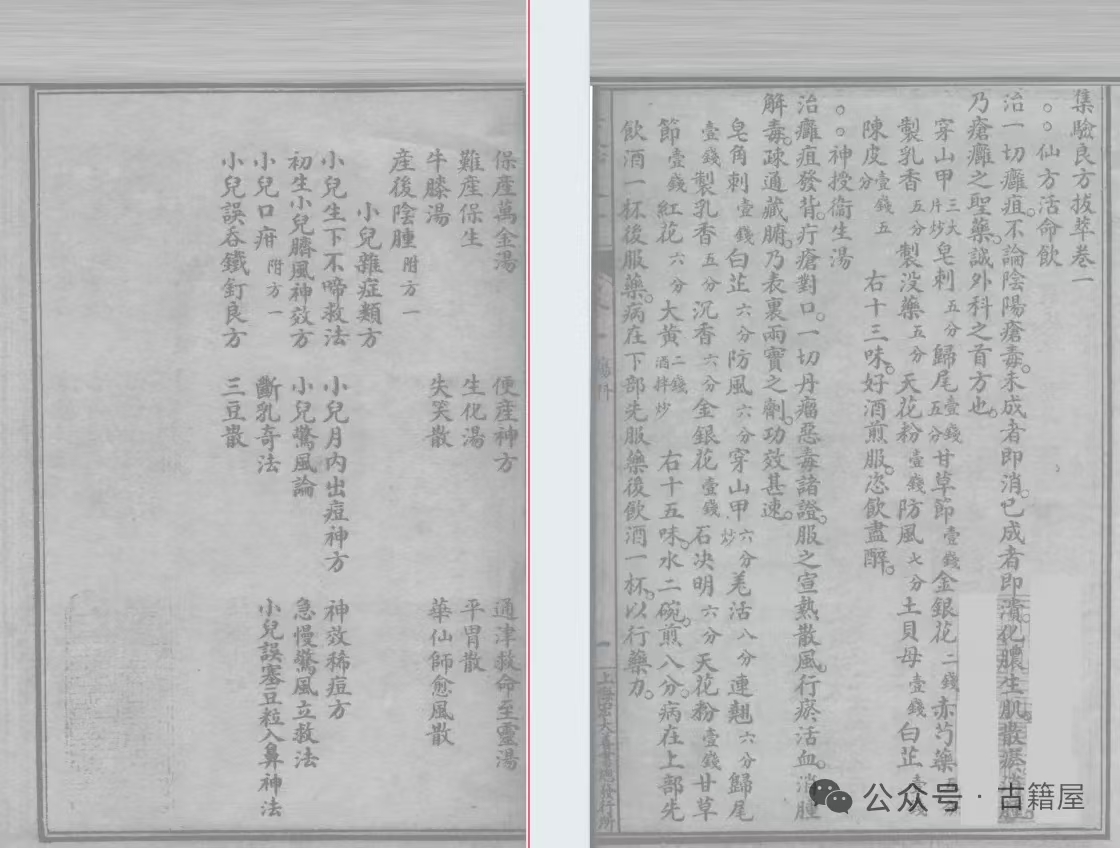 保產萬金湯 便產神方 通津救命至靈湯
難產保生 生化湯 平胃散
牛膝湯 失笑散 華仙師愈風散
產後陰腫附方一
小兒雜症類方
小兒生下不啼救法 小兒月內出痘神方 神效稀痘方
初生小兒臍風神效方 小兒驚風論 急慢驚風立救法
小兒口疳附方一 斷乳奇法 小兒誤塞豆粒入鼻神法
小兒誤吞鐵釘良方 三豆散
集驗良方拔萃卷一
。。仙方活命飲
治一切癰疽。不論陰陽瘡毒。未成者即消。已成者即潰。化膿生肌。散瘀消腫。
乃瘡癰之聖藥。誠外科之首方也。
穿山甲三大片炒 皂刺五分 歸尾壹錢五分 甘草節壹錢 金銀花二錢 赤芍藥
製乳香五分 製沒藥五分 天花粉壹錢 防風七分 土貝母壹錢 白芷
陳皮壹錢五分 右十三味。好酒煎服。恣飲盡醉。
。。神授衛生湯
治癰疽發背。疔瘡對口。一切丹瘤惡毒諸證。服之宣熱散風。行瘀活血。消腫
解毒。疎通藏腑。乃表裏兩實之劑。功效甚速。
皂角刺壹錢 白芷六分 防風六分 穿山甲六分炒 羌活八分 連翹六分 歸尾
壹錢 製乳香五分 沉香六分 金銀花壹錢 石決明六分 天花粉壹錢 甘草
節壹錢 紅花六分 大黃二錢酒拌炒 右十五味。水二碗。煎八分。病在上部先
飲酒一杯後服藥。病在下部先服藥後飲酒一杯。以行藥力。
公众号 · 古籍屋